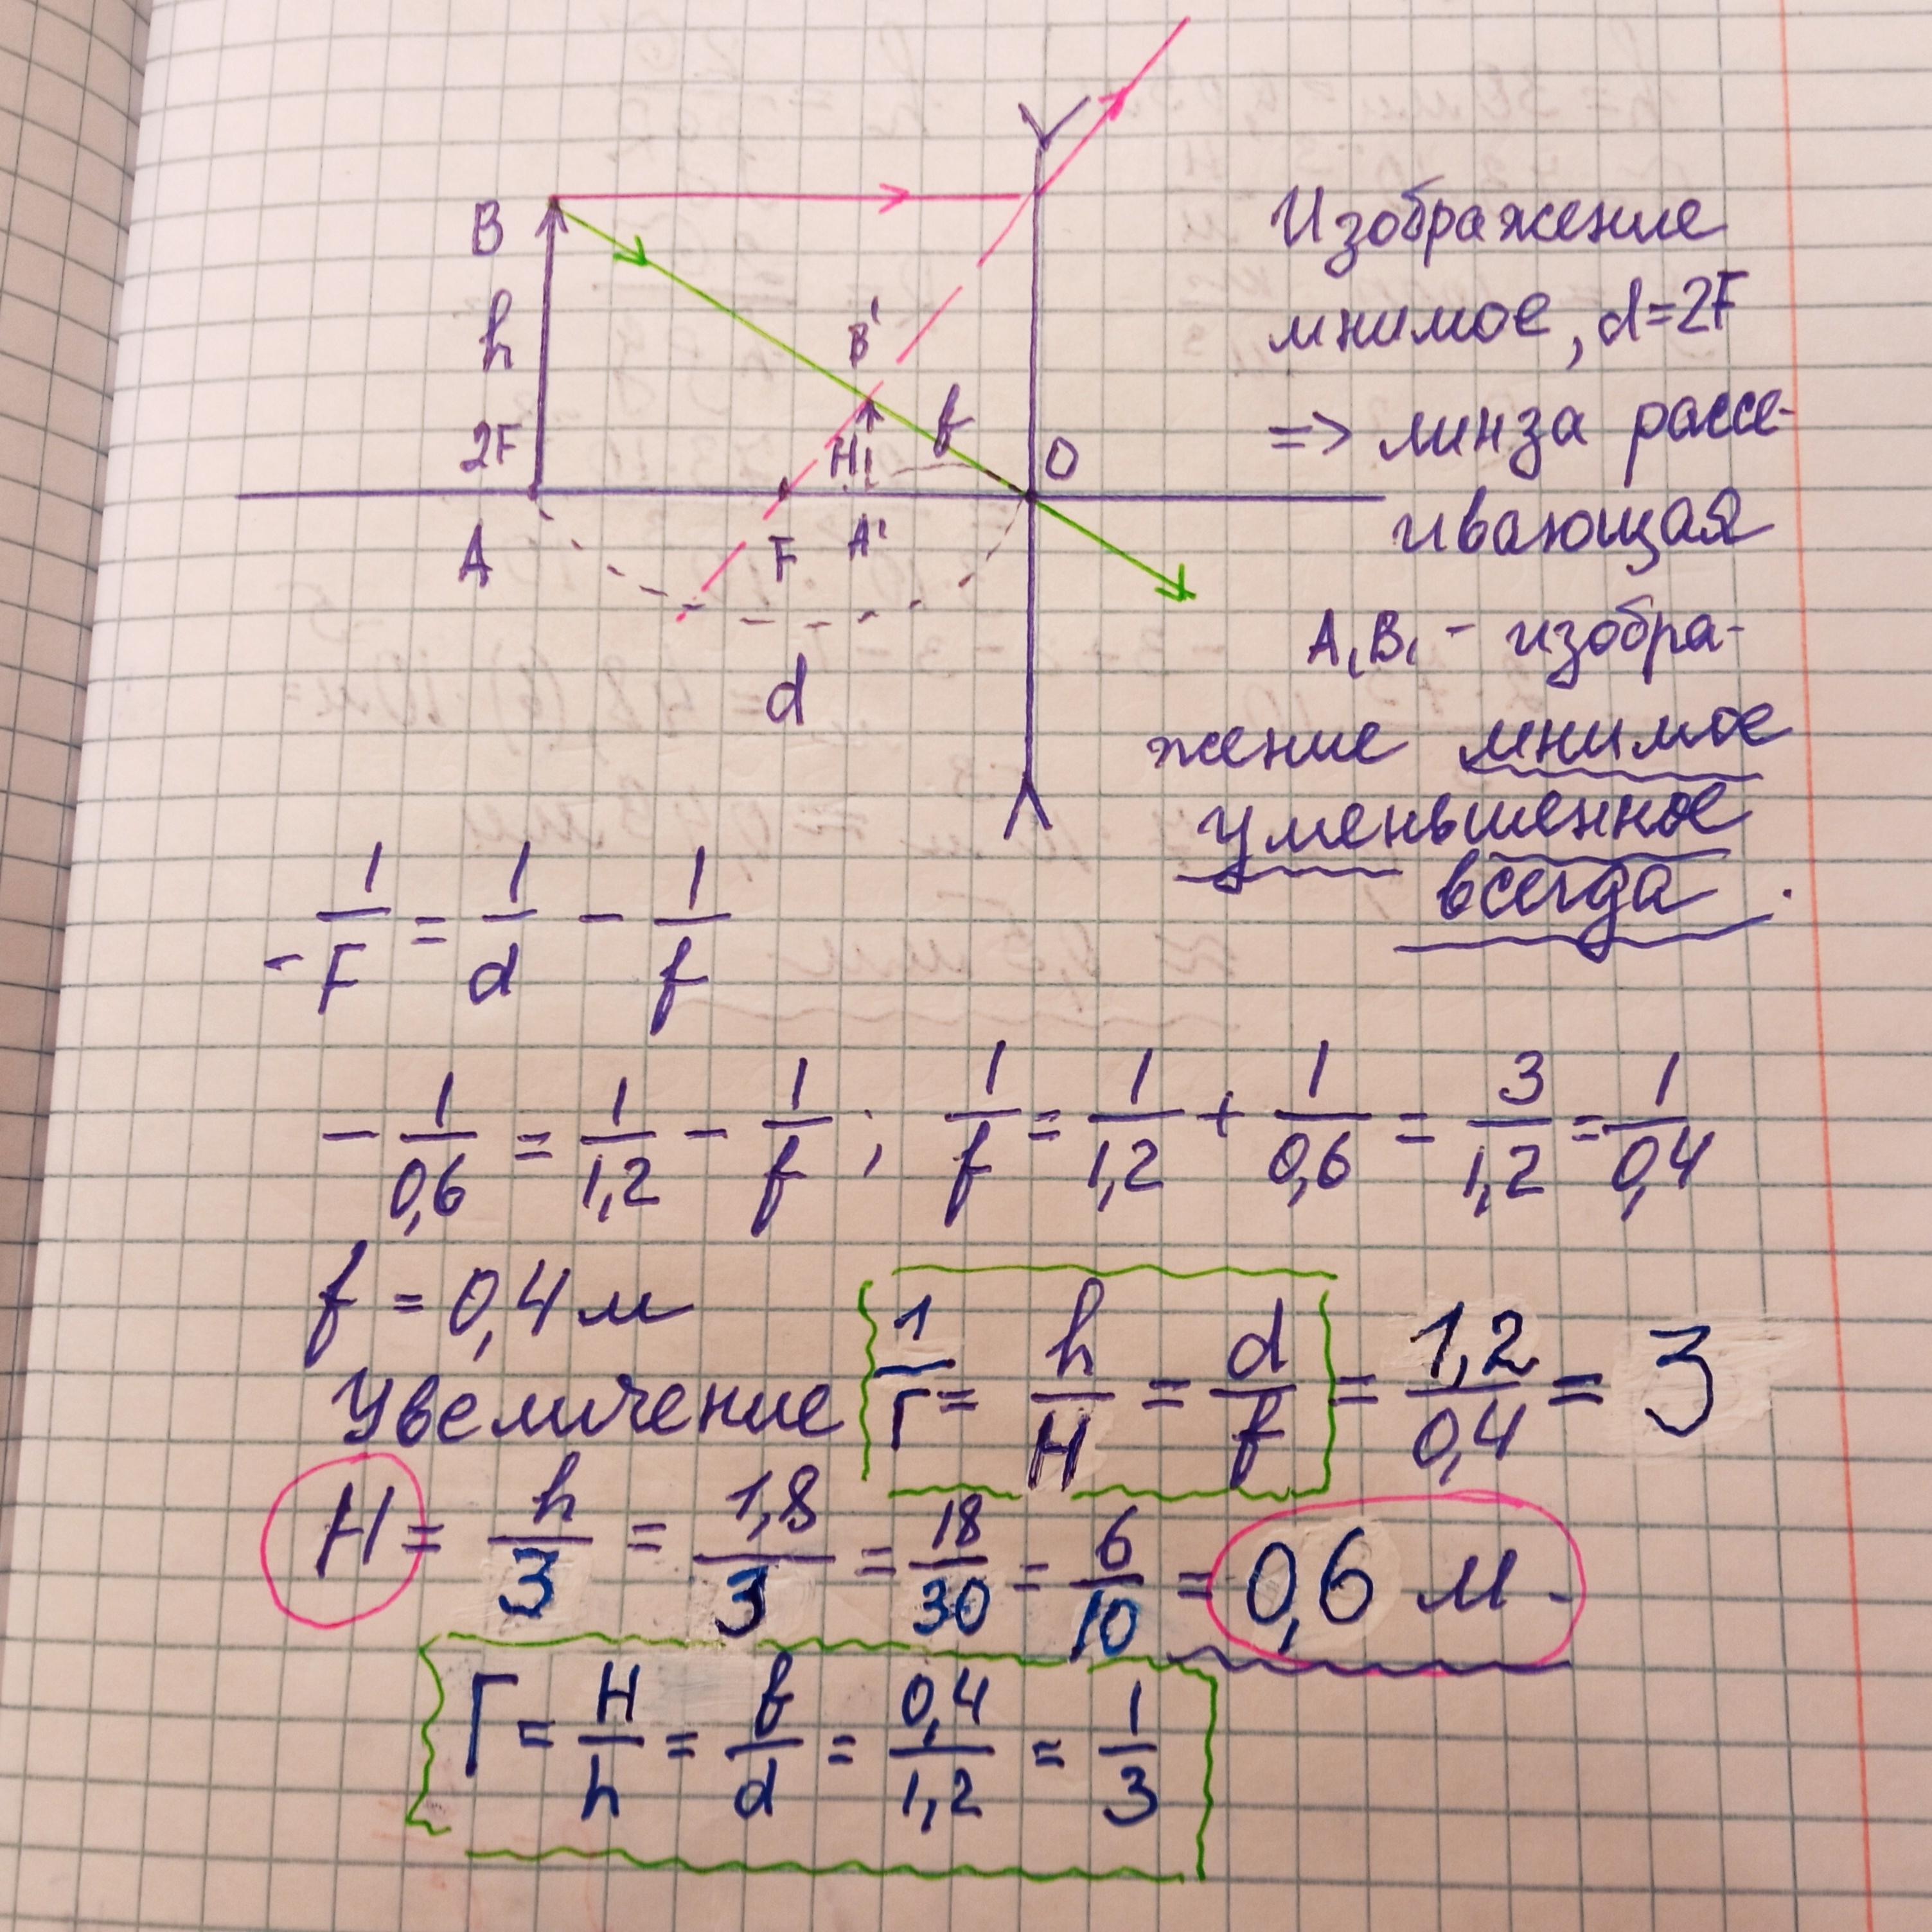 B
h
2F
A
B'
H
f
O
F
A'
d
Изображение
мнимое, d=2F
=> линза рассе-
ивающая
A₁B₁ - изобра-
жение мнимое
уменьшенное
всегда.
- 1/F = 1/d - 1/f
- 1/0,6 = 1/1,2 - 1/f ; 1/f = 1/1,2 + 1/0,6 = 3/1,2 = 1/0,4
f = 0,4 м
Увеличение 1/Г = h/H = d/f = 1,2/0,4 = 3
H = h/3 = 1,8/3 = 18/30 = 6/10 = 0,6 м.
Г = H/h = f/d = 0,4/1,2 = 1/3